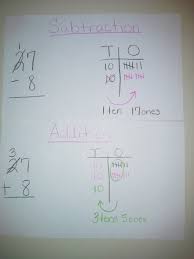 Subtraction
1
27
- 8
T O
10
10
1 ten 17 ones
Addition
3
27
+ 8
T O
10
10
3 tens 5 ones